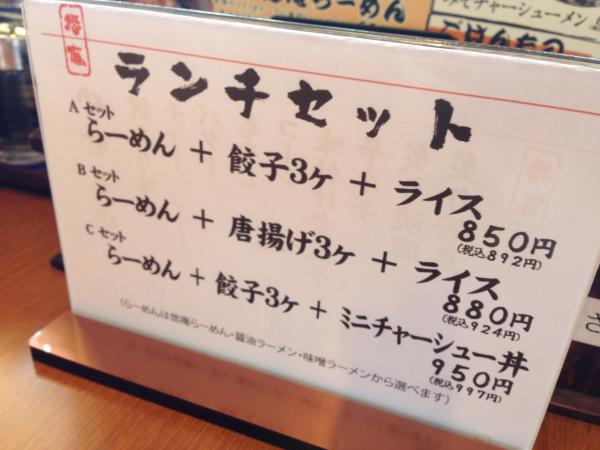 らーめん
ごはんもの
ランチセット
A セット
らーめん + 餃子3ヶ + ライス
850円
(税込892円)
B セット
らーめん + 唐揚げ3ヶ + ライス
880円
(税込924円)
C セット
らーめん + 餃子3ヶ + ミニチャーシュー丼
950円
(税込997円)
(らーめんは悠庵らーめん・醤油ラーメン・味噌ラーメンから選べます)
さ